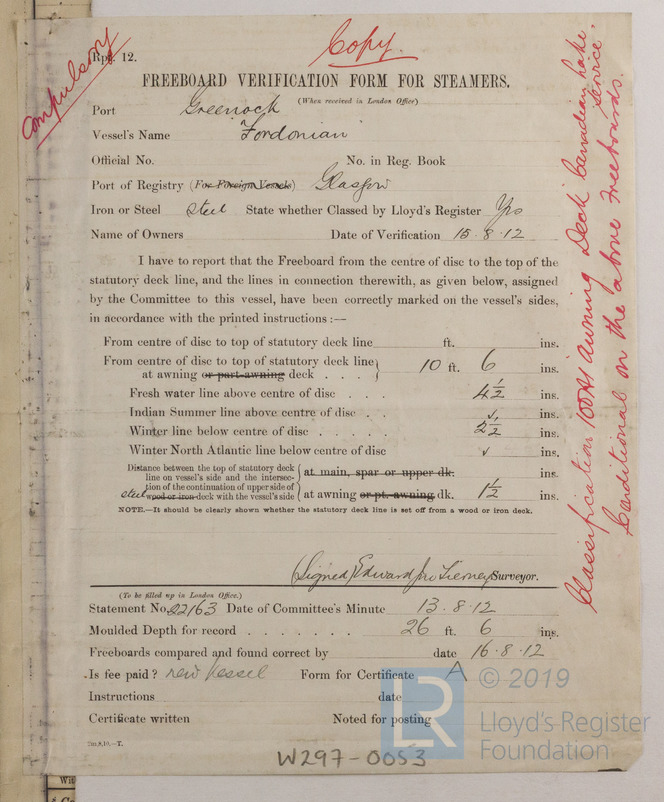 Copy.
compulsory
Rpt. 12.
FREEBOARD VERIFICATION FORM FOR STEAMERS.
(When received in London Office)
Port Greenock
Vessel's Name "Fordonian"
Official No. No. in Reg. Book
Port of Registry (For Foreign Vessels) Glasgow
Iron or Steel Steel State whether Classed by Lloyd's Register Yes
Name of Owners Date of Verification 15.8.12
I have to report that the Freeboard from the centre of disc to the top of the
statutory deck line, and the lines in connection therewith, as given below, assigned
by the Committee to this vessel, have been correctly marked on the vessel's sides,
in accordance with the printed instructions :—
From centre of disc to top of statutory deck line ft. ins.
From centre of disc to top of statutory deck line
at awning or part-awning deck . . . 10 ft. 6 ins.
Fresh water line above centre of disc . . . 4 1/2 ins.
Indian Summer line above centre of disc . . ✓ ins.
Winter line below centre of disc . . . . . 2 1/2 ins.
Winter North Atlantic line below centre of disc ✓ ins.
Distance between the top of statutory deck
line on vessel's side and the intersec-
tion of the continuation of upper side of
steel wood or iron deck with the vessel's side
at main, spar or upper dk. ins.
at awning or pt. awning dk. 1 1/2 ins.
NOTE.—It should be clearly shown whether the statutory deck line is set off from a wood or iron deck.
(Signed) Edward Jno Tierney Surveyor.
(To be filled up in London Office.)
Statement No. 22163 Date of Committee's Minute 13.8.12
Moulded Depth for record . . . . . . . 26 ft. 6 ins.
Freeboards compared and found correct by date 16.8.12
Is fee paid? new vessel Form for Certificate A
Instructions date
Certificate written Noted for posting
W297-0053
Classification 100A1 Awning Deck Canadian Lake
Service
Conditional on the above Freeboards.
LR
© 2019
Lloyd's Register
Foundation